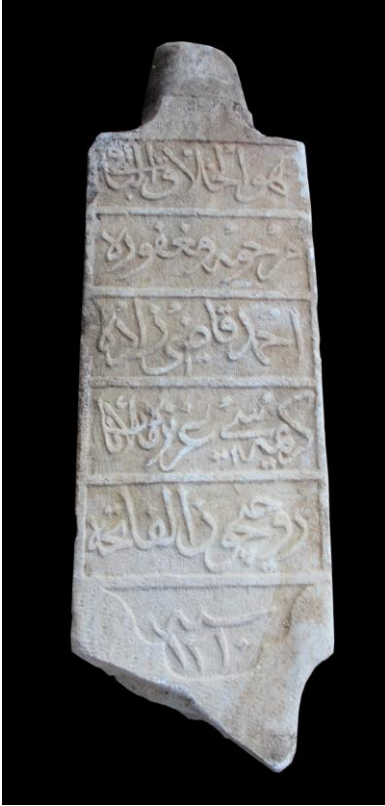 هو الخلاق الباقي
مرحومه و مغفوره
احمد قاضي زاده
كريمه سي عزيزه
روحيچون الفاتحه
سنه
١٢١٠